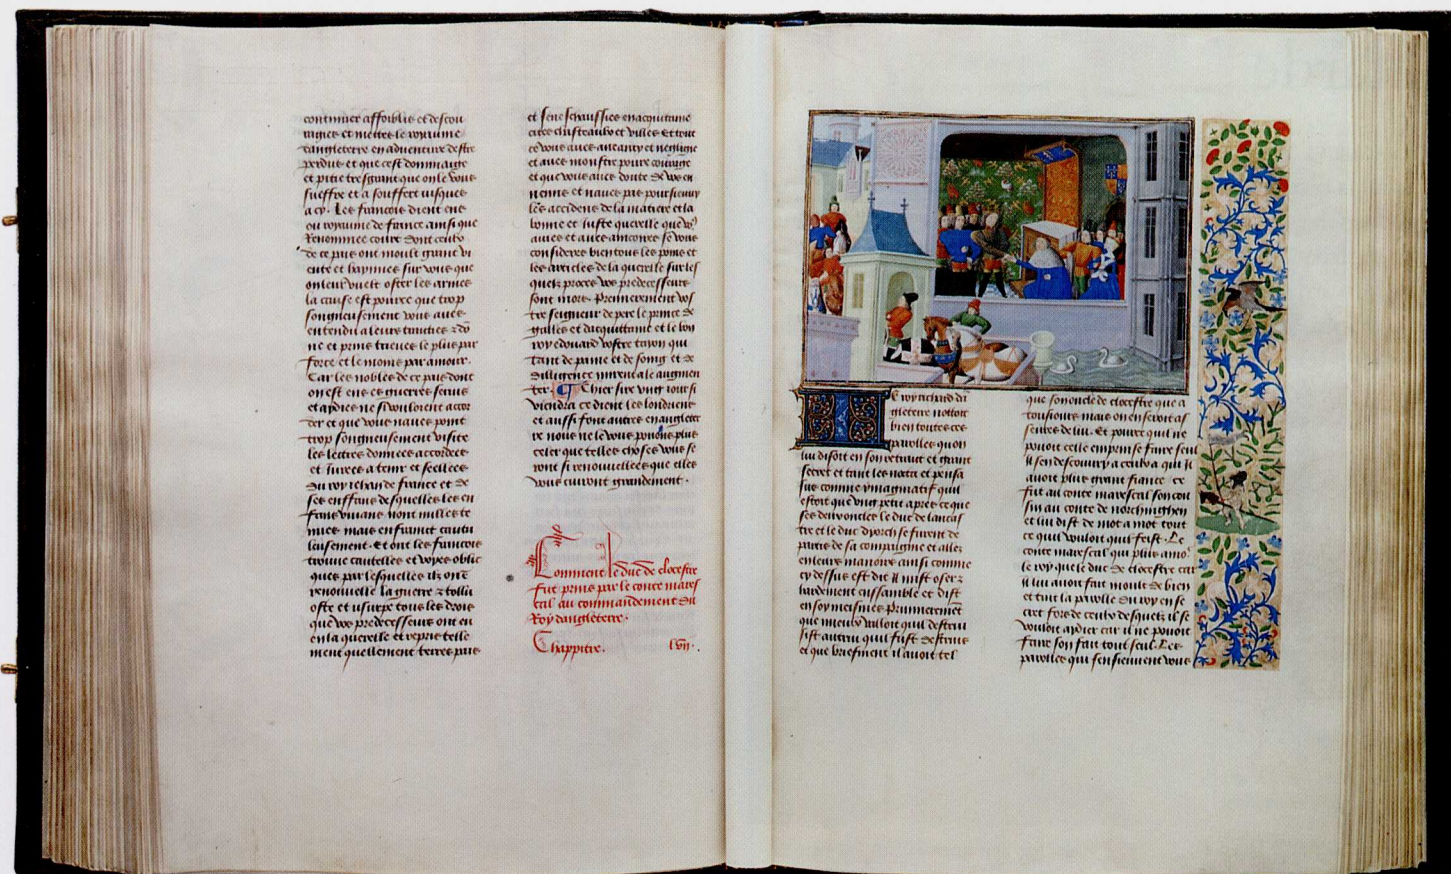 continuer affoiblis et descou
ragies et mettre le royaume
dangleterre en adventure destre
perdus et que cest dommaige
et pitie tresgrant que on le vous
sueffre et a souffert iusques
a cy. Les francois dient ens
ou royaume de france ainsi que
Renommee court dont ceulx
de ce pais ont moult grant vi
que on
leur vuelt oster les armes
la cause est pource que trop
songneusement vous aves
entendu a leurs
ne et prins treues le plus par
force et le moins par amour.
Car les nobles de ce pais dont
on sest ens es guerres seruis
et aydies ne si vouloient accor
der et que vous naves point
trop songneusement visite
les lettres donnees accordees
et iurees a tenir et seellees
du roy iehan de france et de
ses enffans desquelles les en
fans viuans nont milles te
nues mais enfraint cautu
leusement. Et ont les francois
trouue cautelles et voyes oblic
ques par lesquelles ilz ont
renouuelle la guerre z tollu
oste et usurpe tous les drois
que vos predecesseurs ont eu
en la querelle et repris telle
ment quellement terres pais
et senescaussies en acquitaine
cites chasteaulx et villes Et tout
ce vous aues aneanty et negligie
et aues monstre poure couraige
et que vous aues doute de vos en
nemis et naues pas poursieuuy
les accidens de la matiere et la
bonne et iuste querelle que vo9
auies et aues ancores se vous
consideres bien tous les poins et
les articles de la querelle sur les
quelz proces vos predecesseurs
sont mors. Premierement vos
tre seigneur de pere le prince de
galles et dacquittaine et le bon
roy edouard vostre tayon qui
tant de paine et de soing et de
dilligence mirent a le augmen
ter. Chier sire ung iour si
viendra ce dient les londriens
et aussi font autres en angleter
re nous ne le vous pouons plus
celer que telles choses vous se
ront si renouuellees que elles
vous cuiront grandement.
Comment le duc de clocestre
fut prins par le conte mares
cal au commandement du
Roy dangleterre.
Chappitre. lvii.
Le roy richard dã
gleterre nottoit
bien toutes ces
parolles quon
lui disoit en son retrait et grant
secret et tant les notta et pensa
sus comme ymaginatif quil
estoit que ung petit apres ce que
ses deux oncles le duc de lancas
tre et le duc dyorch se furent de
partis de sa compaignie et allez
en leurs manoirs ainsi comme
cy dessus est dit il mist oser z
hardement ensamble et dist
en soy meismes Premierement
que mieulx valloit quil destrui
sist autrui quil fust destruis
et que briefment il auoit tel
que son oncle de clocestre que a
tousiours mais on en seroit as
seures de lui. Et pource quil ne
pouoit celle emprinse faire seul
il sen descouury a ceulx a qui il
auoit plus grant fiance ce
fut au conte marescal son cou
sin au conte de northinghen
et lui dist de mot a mot tout
ce quil vouloit quil feist. Le
conte marescal qui plus amo
le roy que le duc de clocestre car
il lui auoit fait moult de bien
et tint la parolle du roy en se
cret fors de ceulx desquelz il se
vouloit aydier car il ne pouoit
faire son fait tout seul. Les
parolles qui sensieuuent vous